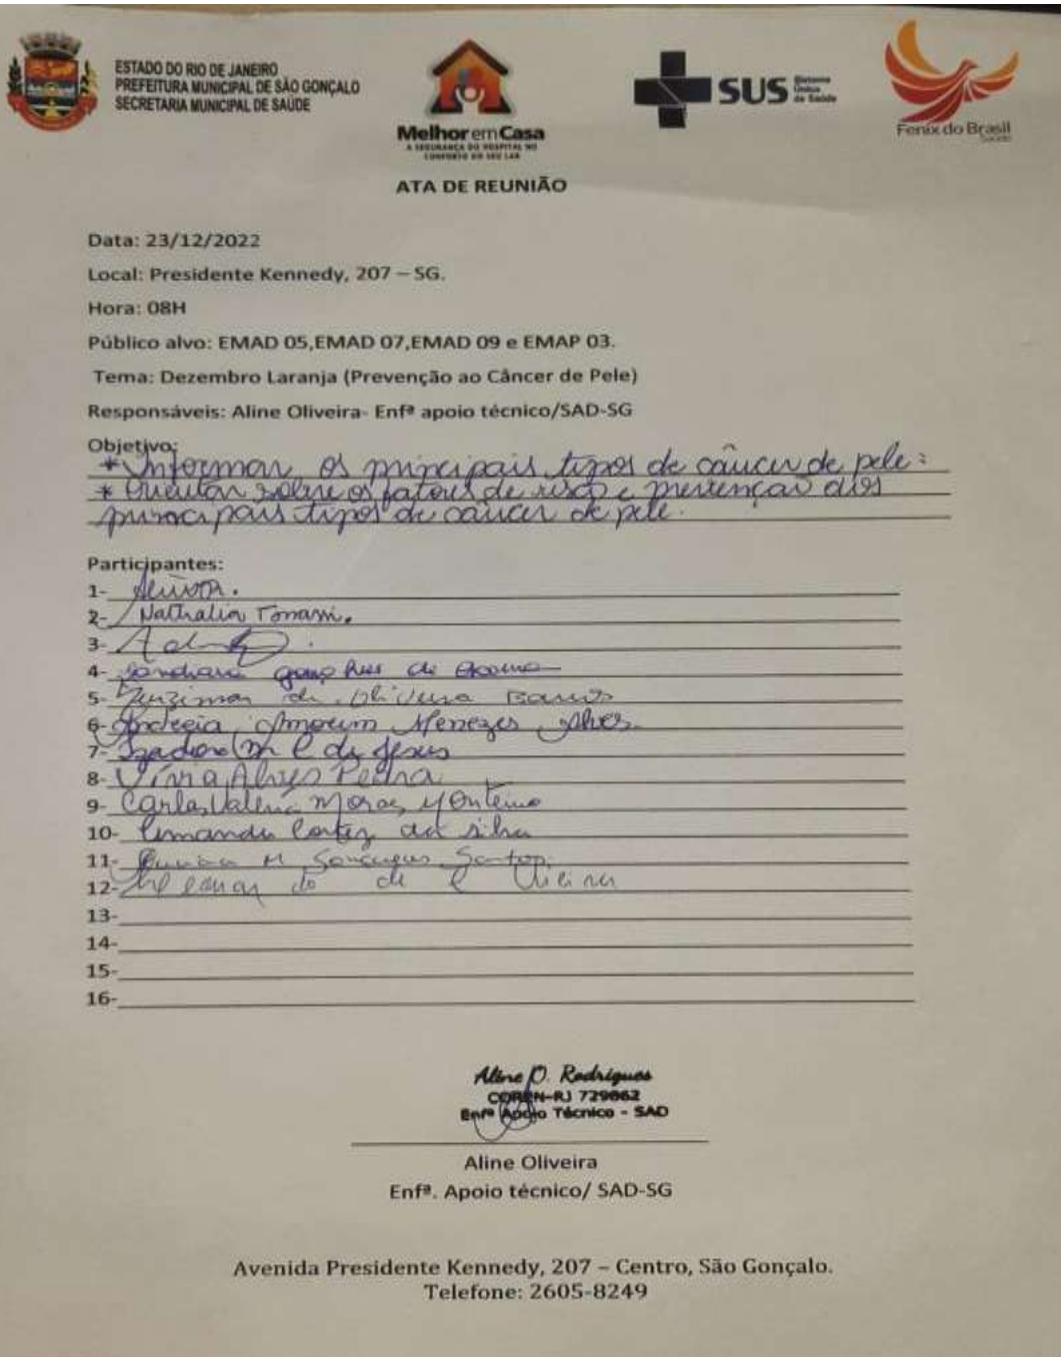 ESTADO DO RIO DE JANEIRO
PREFEITURA MUNICIPAL DE SÃO GONÇALO
SECRETARIA MUNICIPAL DE SAÚDE
Melhor em Casa
A SEGURANÇA DO HOSPITAL NO
CONFORTO DO SEU LAR
SUS Sistema
Único
de Saúde
Fenix do Brasil
Saúde
ATA DE REUNIÃO
Data: 23/12/2022
Local: Presidente Kennedy, 207 – SG.
Hora: 08H
Público alvo: EMAD 05,EMAD 07,EMAD 09 e EMAP 03.
Tema: Dezembro Laranja (Prevenção ao Câncer de Pele)
Responsáveis: Aline Oliveira- Enfª apoio técnico/SAD-SG
Objetivo:
* Informar os principais tipos de câncer de pele:
* Orientar sobre os fatores de risco e prevenção aos
principais tipos de câncer de pele.
Participantes:
1-
2- Nathalia Tomassi.
3-
4- gonçalves de
5- de Oliveira Barros
6- Amorim Menezes Alves
7- Izadora M C de Jesus
8- Vívia Alves Pedra
9- Carla Valeria Moraes Monteiro
10- Fernanda Cortez da silva
11- M Santos
12- do de C Vieira
13-
14-
15-
16-
Aline O. Rodrigues
COREN-RJ 729862
Enfª Apoio Técnico - SAD
Aline Oliveira
Enfª. Apoio técnico/ SAD-SG
Avenida Presidente Kennedy, 207 – Centro, São Gonçalo.
Telefone: 2605-8249